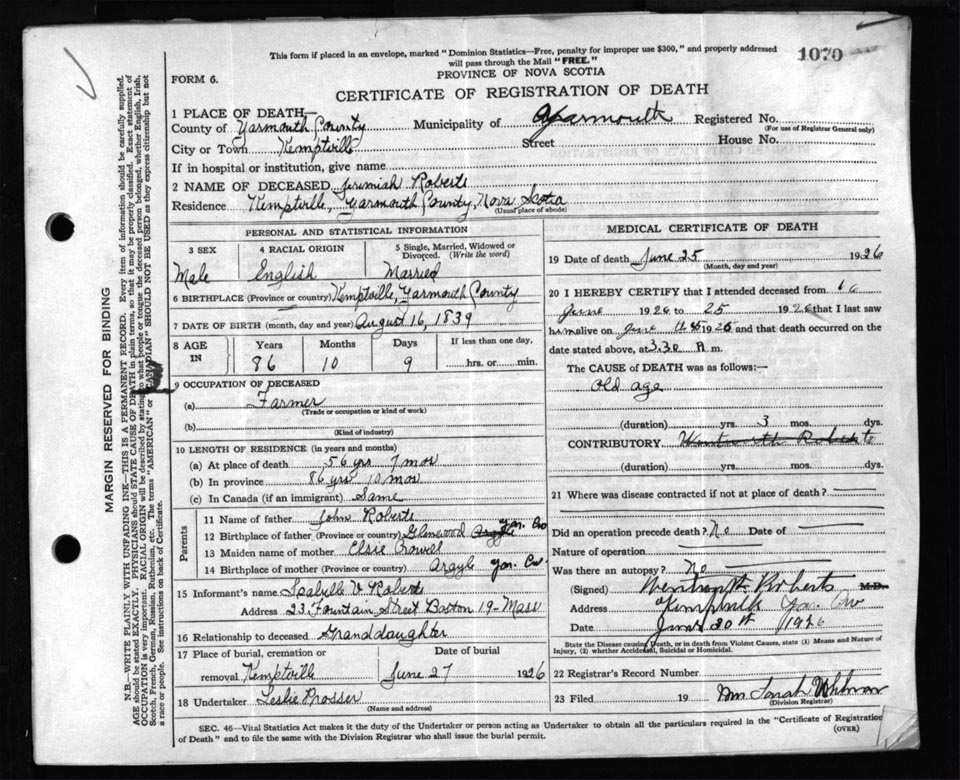 This form if placed in an envelope, marked "Dominion Statistics—Free, penalty for improper use $300," and properly addressed
will pass through the Mail "FREE."
1070
PROVINCE OF NOVA SCOTIA
FORM 6.
CERTIFICATE OF REGISTRATION OF DEATH
1 PLACE OF DEATH—
County of Yarmouth County Municipality of Yarmouth Registered No.
(For use of Registrar General only)
City or Town Kemptville Street House No.
If in hospital or institution, give name
2 NAME OF DECEASED Jeremiah Roberts
Residence Kemptville, Yarmouth County, Nova Scotia
(Usual place of abode)
PERSONAL AND STATISTICAL INFORMATION
3 SEX 4 RACIAL ORIGIN 5 Single, Married, Widowed or
Divorced. (Write the word)
Male English Married
6 BIRTHPLACE (Province or country) Kemptville, Yarmouth County
7 DATE OF BIRTH (month, day and year) August 16, 1839
8 AGE IN Years Months Days If less than one day,
86 10 9 hrs. or min.
9 OCCUPATION OF DECEASED
(a) Farmer
(Trade or occupation or kind of work)
(b)
(Kind of industry)
10 LENGTH OF RESIDENCE (in years and months)
(a) At place of death 56 yrs 7 mos
(b) In province 86 yrs 10 mos
(c) In Canada (if an immigrant) Same
Parents
11 Name of father John Roberts
12 Birthplace of father (Province or country) Glenwood Argyle Yar. Co
13 Maiden name of mother Elsie Crowel
14 Birthplace of mother (Province or country) Argyle Yar. Co
15 Informant's name Isabelle V Roberts
Address 23 Fountain Street Boston 19-Mass
16 Relationship to deceased Granddaughter
17 Place of burial, cremation or Date of burial
removal Kemptville June 27 1926
18 Undertaker Leslie Prosser
(Name and address)
MEDICAL CERTIFICATE OF DEATH
19 Date of death June 25 1926
(Month, day and year)
20 I HEREBY CERTIFY that I attended deceased from 16
June 1926 to 25 1926 that I last saw
him alive on June 1926 and that death occurred on
date stated above, at 3.30 A m.
The CAUSE of DEATH was as follows:—
Old age
(duration) yrs. 3 mos. dys.
CONTRIBUTORY Wentworth Roberts
(duration) yrs. mos. dys.
21 Where was disease contracted if not at place of death?
Did an operation precede death? No Date of
Nature of operation
Was there an autopsy? No
(Signed) Roberts M.D.
Address Yar. Co
Date 1926
State the Disease causing Death, or in death from Violent Causes, state (1) Means and Nature of
Injury, (2) whether Accidental, Suicidal or Homicidal.
22 Registrar's Record Number
23 Filed 19 Mrs Sarah Whitman
(Division Registrar)
SEC. 46—Vital Statistics Act makes it the duty of the Undertaker or person acting as Undertaker to obtain all the particulars required in the "Certificate of Registration
of Death" and to file the same with the Division Registrar who shall issue the burial permit.
(OVER)
MARGIN RESERVED FOR BINDING
N.B.—WRITE PLAINLY WITH UNFADING INK—THIS IS A PERMANENT RECORD. Every item of information should be carefully supplied.
AGE should be stated EXACTLY. PHYSICIANS should STATE CAUSE OF DEATH in plain terms, so that it may be properly classified. Exact statement of
OCCUPATION is very important. RACIAL ORIGIN will be described by stating to what people or tongue the deceased person belonged, whether English, Irish,
Scotch, French, German, Russian, Ruthenian, etc. The terms "AMERICAN" or "CANADIAN" SHOULD NOT BE USED as they express citizenship but not
a race or people. See instructions on back of Certificate.